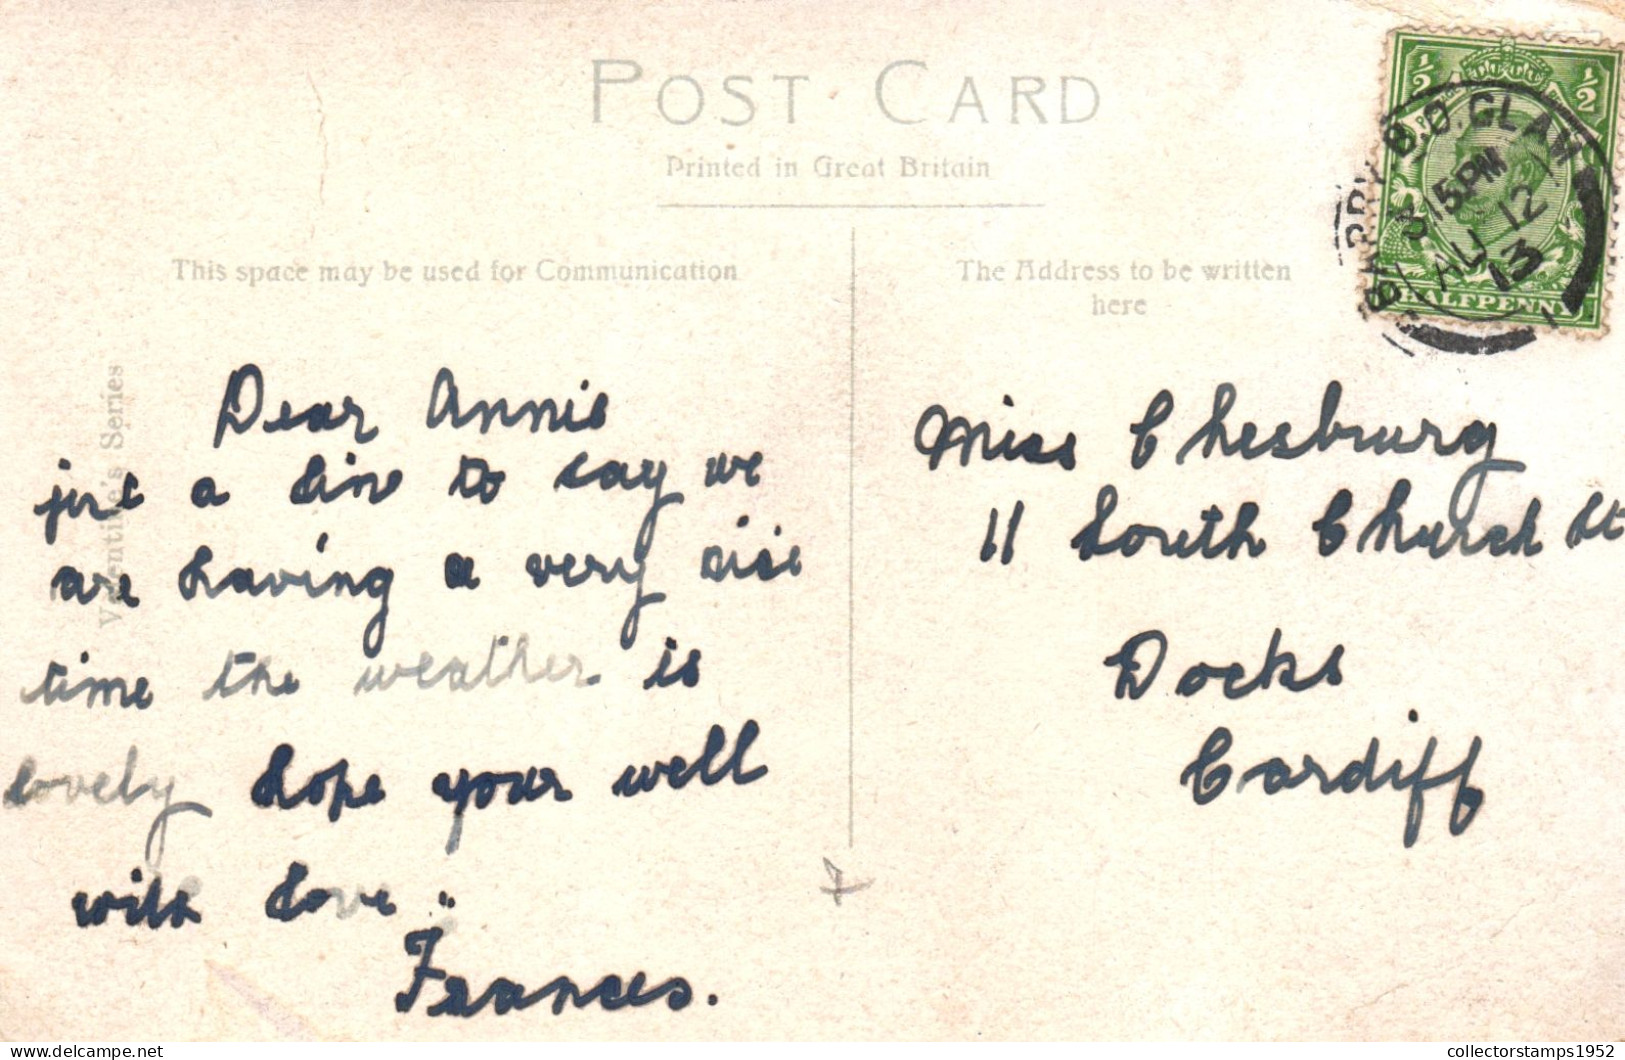 POST CARD
Printed in Great Britain
This space may be used for Communication
The Address to be written
here
Valentine's Series
½ ½
HALFPENNY
BARRY B.O. GLAM
3 15PM
AU 12
13
Dear Annie
just a line to say we
are having a very nice
time the weather is
lovely hope your well
with love
Frances.
Miss Chesburg
11 South Church St
Docks
Cardiff
7
delcampe.net
collectorstamps1952